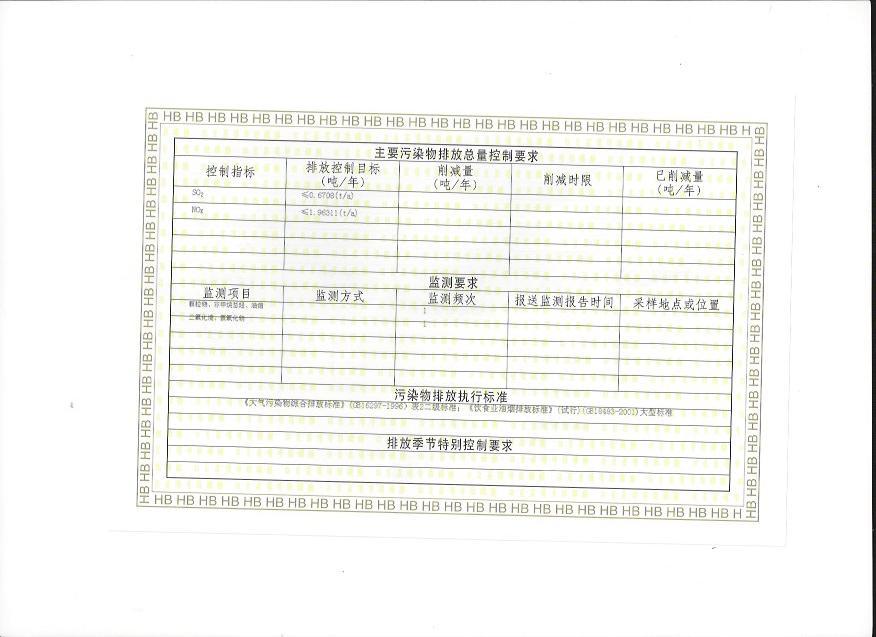 HB HB HB HB HB HB HB HB HB HB HB HB HB HB HB HB HB HB HB HB HB HB HB HB HB HB H
主要污染物排放总量控制要求
控制指标 排放控制目标(吨/年) 削减量(吨/年) 削减时限 已削减量(吨/年)
SO₂ ≤0.6708(t/a)
NOx ≤1.96311(t/a)
监测要求
监测项目 监测方式 监测频次 报送监测报告时间 采样地点或位置
颗粒物、非甲烷总烃、油烟 1
二氧化硫、氮氧化物 1
污染物排放执行标准
《大气污染物综合排放标准》(GB16297-1996)表2二级标准;《饮食业油烟排放标准》(试行)(GB18483-2001)大型标准
排放季节特别控制要求
HB HB HB HB HB HB HB HB HB HB HB HB HB HB HB HB HB HB HB HB HB HB HB HB HB HB H